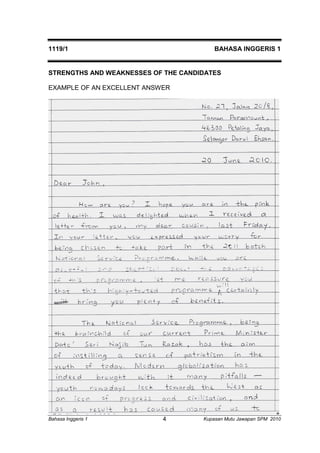 1119/1 BAHASA INGGERIS 1
STRENGTHS AND WEAKNESSES OF THE CANDIDATES
EXAMPLE OF AN EXCELLENT ANSWER
No. 27, Jalan 20/8,
Taman Paramount,
46300 Petaling Jaya,
Selangor Darul Ehsan.
20 June 2010.
Dear John,
How are you? I hope you are in the pink
of health. I was delighted when I received a
letter from you, my dear cousin, last Friday.
In your letter, you expressed your worry for
being chosen to take part in the 2011 batch
National Service Programme. While you are
about the advantages
of this programme, let me reassure you
that this programme will certainly
bring you plenty of benefits.
The National Service Programme, being
the brainchild of our current Prime Minister
Dato' Seri Najib Tun Razak, has the aim
of instilling a sense of patriotism in the
youth of today. Modern globalization has
indeed brought with it many pitfalls —
youth nowadays look towards the West as
an icon of progress and civilisation, and
as a result has caused many of us to
Bahasa Inggeris 1 4 Kupasan Mutu Jawapan SPM 2010